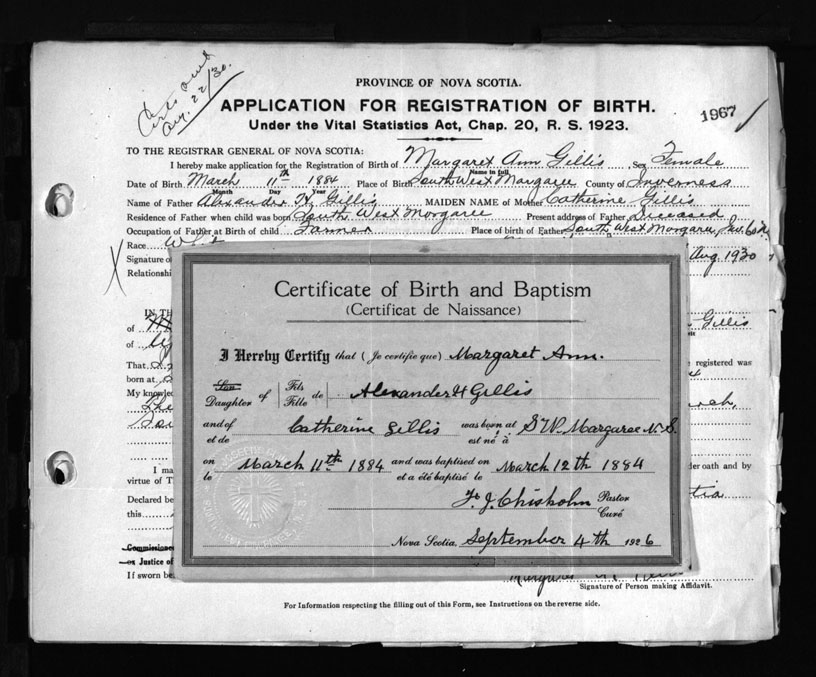 Certs and
Aug. 22/30.
PROVINCE OF NOVA SCOTIA.
APPLICATION FOR REGISTRATION OF BIRTH.
1967
Under the Vital Statistics Act, Chap. 20, R. S. 1923.
TO THE REGISTRAR GENERAL OF NOVA SCOTIA:
I hereby make application for the Registration of Birth of Margaret Ann Gillis Sex Female
Name in full
Date of Birth March 11th 1884 Place of Birth South West Margaree County of Inverness
Month Day Year
Name of Father Alexander H. Gillis MAIDEN NAME of Mother Catherine Gillis
Residence of Father when child was born South West Margaree Present address of Father Deceased
Occupation of Father at Birth of child Farmer Place of birth of Father South West Margaree, Inv. Co N.
Race
Signature o Aug. 1930
Relationshi
IN TH
of Gillis
of
That registered was
born at
My knowled
The rch,
I ma der oath and by
virtue of T
Declared be
this
Commissione
or Justice of
If sworn be
Signature of Person making Affidavit.
For Information respecting the filling out of this Form, see Instructions on the reverse side.
Certificate of Birth and Baptism
(Certificat de Naissance)
I Hereby Certify that (Je certifie que) Margaret Ann.
Son Daughter of Fils Fille de Alexander H Gillis
and of et de Catherine Gillis was born at est né à S.W. Margaree N.S.
on le March 11th 1884 and was baptised on et a été baptisé le March 12th 1884
F. J. Chisholm Pastor Curé
Nova Scotia, September 4th 1926